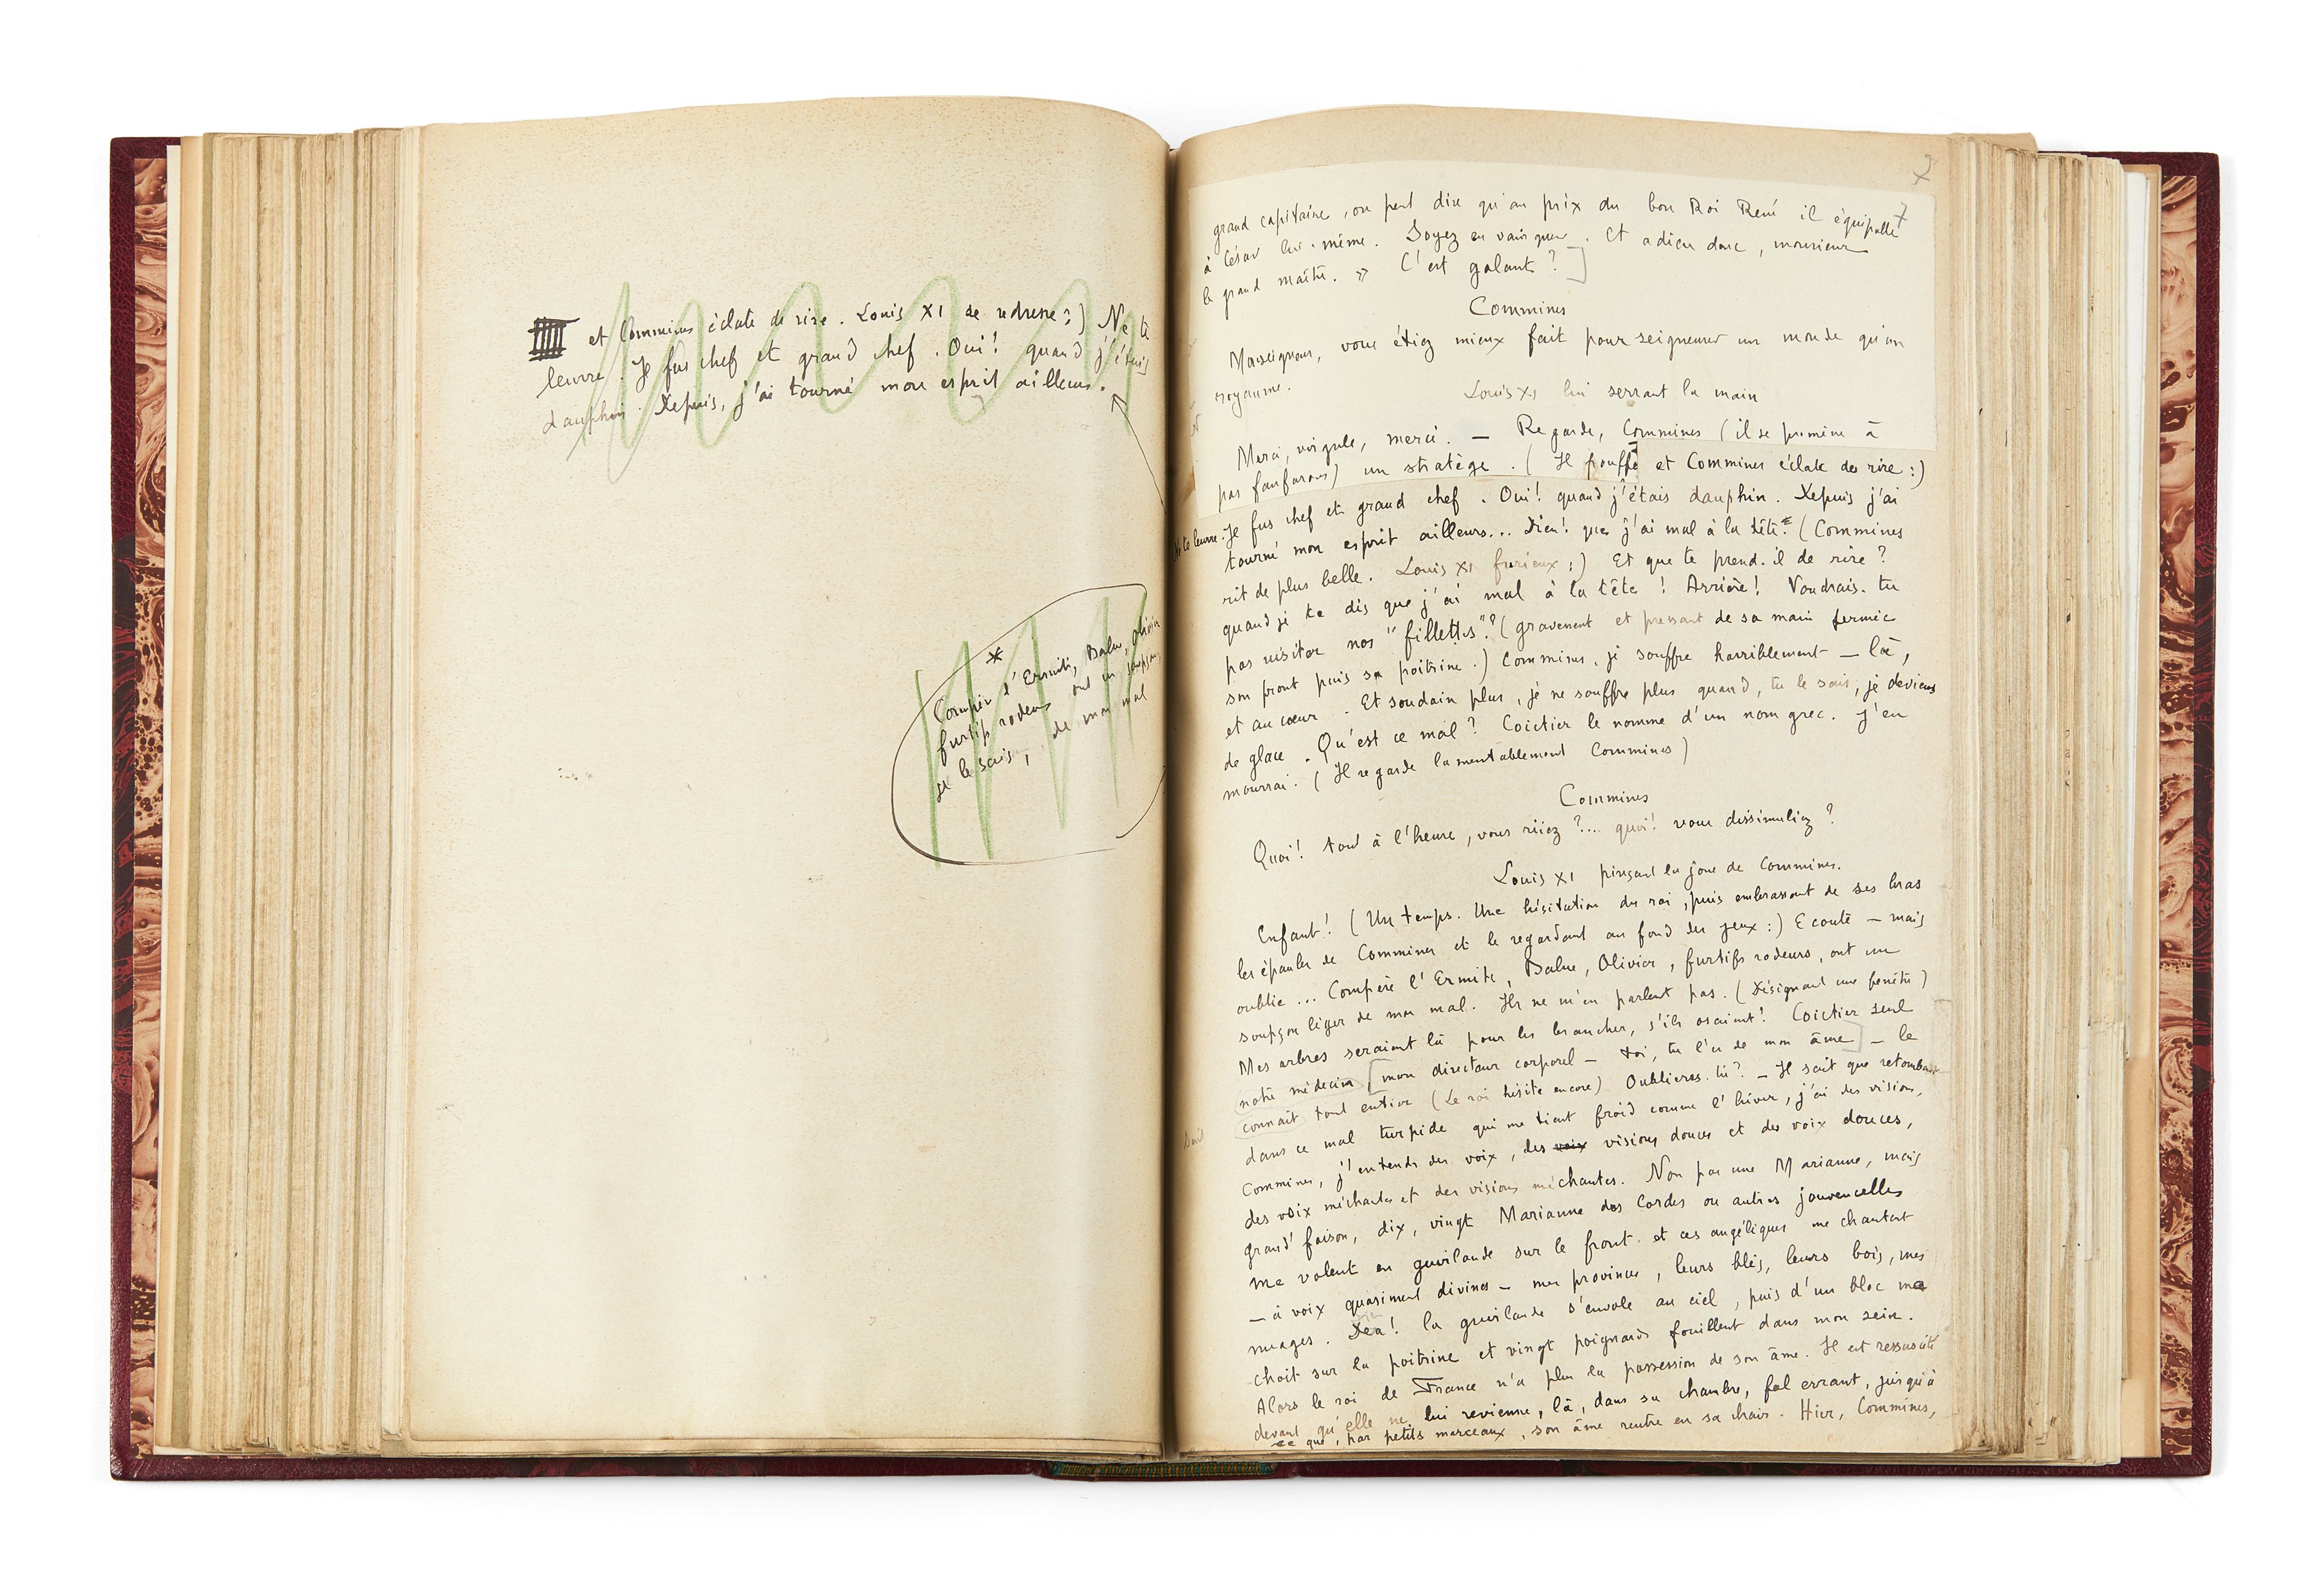 et Commines éclate de rire. Louis XI se redresse :) Ne te
leurre. Je fus chef et grand chef. Oui! quand j'étais
dauphin. Depuis, j'ai tourné mon esprit ailleurs.
*
Compère l'Ermite, Balue, Olivier
furtifs rodeurs ont un soupçon
je le sais, de mon mal
7
7
grand capitaine, on peut dire qu'au prix du bon Roi René il équipolle
à César lui-même. Soyez en vainqueur. Et adieu donc, monsieur
le grand maître. » C'est galant? ]
Commines
Monseigneur, vous étiez mieux fait pour seigneurer un monde qu'un
royaume.
Louis XI lui serrant la main
Merci, virgule, merci. — Regarde, Commines (il se promène à
pas fanfarons) un stratège. (Il pouffe et Commines éclate de rire :)
Ne te leurre. Je fus chef et grand chef. Oui! quand j'étais dauphin. Depuis j'ai
tourné mon esprit ailleurs... Dieu! que j'ai mal à la tête. (Commines
rit de plus belle. Louis XI furieux :) Et que te prend-il de rire?
quand je te dis que j'ai mal à la tête! Arrière! Voudrais-tu
pas visiter nos "fillettes"? (gravement et pressant de sa main fermée
son front puis sa poitrine.) Commines, je souffre horriblement — là,
et au cœur. Et soudain plus, je ne souffre plus quand, tu le sais, je deviens
de glace. Qu'est ce mal? Coictier le nomme d'un nom grec. J'en
mourrai. (Il regarde lamentablement Commines)
Commines
Quoi! tout à l'heure, vous riiez?... quoi! vous dissimuliez?
Louis XI pinçant la joue de Commines.
Enfant! (Un temps. Une hésitation du roi, puis embrassant de ses bras
les épaules de Commines et le regardant au fond des yeux :) Ecoute — mais
oublie... Compère l'Ermite, Balue, Olivier, furtifs rodeurs, ont un
soupçon léger de mon mal. Ils ne m'en parlent pas. (Désignant une fenêtre)
Mes arbres seraient là pour les brancher, s'ils osaient! Coictier seul
notre médecin [mon directeur corporel — toi, tu l'es de mon âme] — le
connaît tout entier (Le roi hésite encore) Oublieras-tu? — Il sait que retombant
dans ce mal turpide qui me tient froid comme l'hiver, j'ai des visions,
Commines, j'entends des voix, des voix visions douces et des voix douces,
des voix méchantes et des visions méchantes. Non pas une Marianne, mais
grand' foison, dix, vingt Marianne des Cordes ou autres jouvencelles
me volent en guirlande sur le front et ces angéliques me chantent
— à voix quasiment divines — mes provinces, leurs blés, leurs bois, mes
nuages. Dea! la guirlande s'envole au ciel, puis d'un bloc me
choit sur la poitrine et vingt poignards fouillent dans mon sein.
Alors le roi de France n'a plus la possession de son âme. Il est ressuscité
devant qu'elle ne lui revienne, là, dans sa chambre, fol errant, jusqu'à
ce que, par petits morceaux, son âme rentre en sa chair. Hier, Commines,